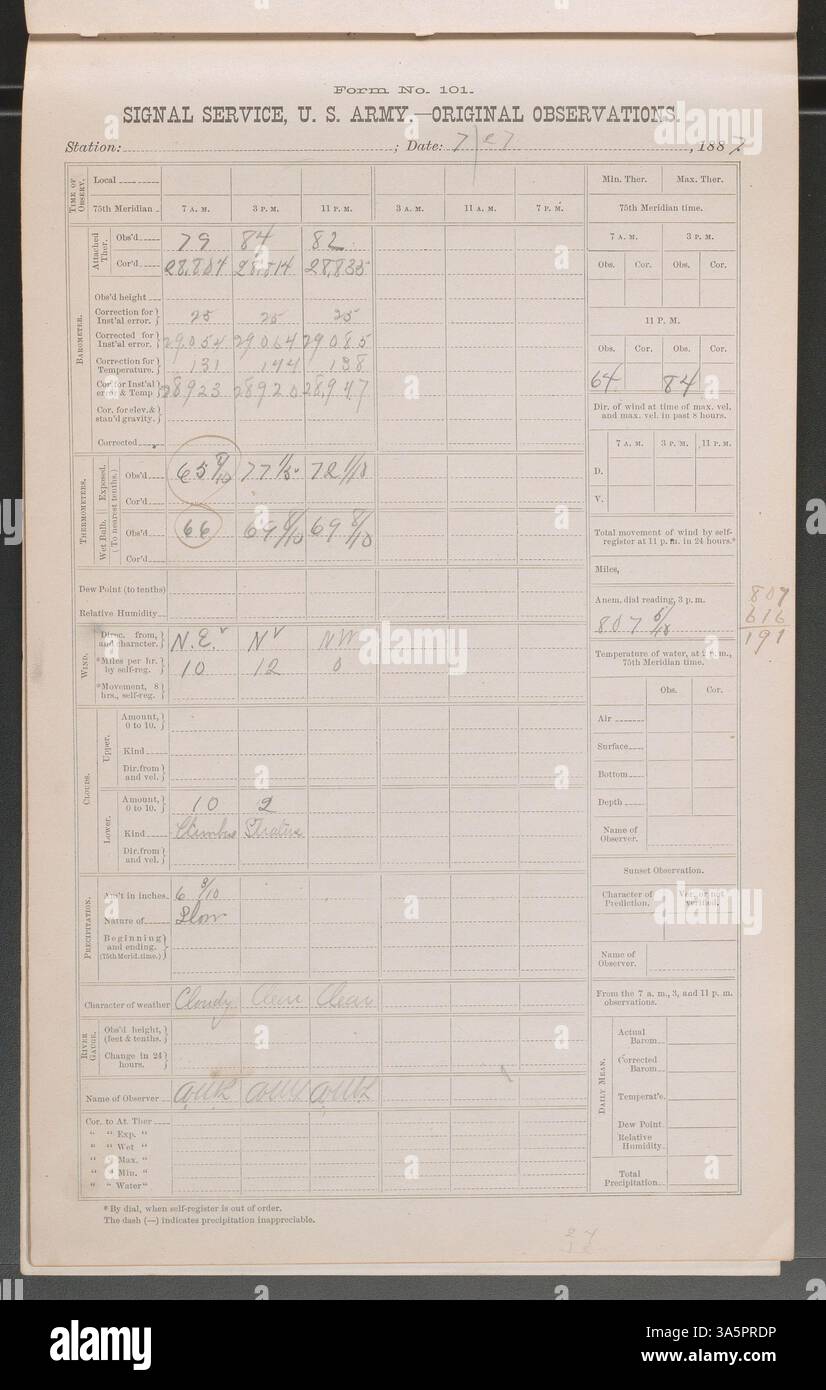 Form No. 101.
SIGNAL SERVICE, U. S. ARMY.—ORIGINAL OBSERVATIONS.
Station: ; Date: , 1887
TIME OF OBSERV.
Local
75th Meridian 7 A. M. 3 P. M. 11 P. M. 3 A. M. 11 A. M. 7 P. M.
BAROMETER.
Attached Ther.
Obs'd 79 84 82
Cor'd 28.814 28.835
Obs'd height
Correction for Inst'al error. 25 25 25
Corrected for Inst'al error. 29.054 29.064 29.085
Correction for Temperature. 131 144 138
Cor. for Inst'al error & Temp 28923 28920 28,947
Cor. for elev. & stan'd gravity.
Corrected
THERMOMETERS.
(To nearest tenths.)
Exposed.
Obs'd 65 9/10 77 72 1/10
Cor'd
Wet Bulb.
Obs'd 66 69 8/10 69 8/10
Cor'd
Dew Point (to tenths)
Relative Humidity
WIND.
Direc. from, and character. N.E. N NW
*Miles per hr. by self-reg. 10 12 0
*Movement, 8 hrs., self-reg.
CLOUDS.
Upper.
Amount, 0 to 10.
Kind
Dir. from and vel.
Lower.
Amount, 0 to 10. 10 2
Kind Stratus
Dir. from and vel.
PRECIPITATION.
Am't in inches.
Nature of
Beginning and ending. (75th Merid. time.)
Character of weather Cloudy Clear Clear
RIVER GAUGE.
Obs'd height, (feet & tenths.)
Change in 24 hours.
Name of Observer
Cor. to At. Ther
“ “ Exp. “
“ “ Wet “
“ “ Max. “
“ “ Min. “
“ “ Water “
* By dial, when self-register is out of order.
The dash (—) indicates precipitation inappreciable.
Min. Ther. Max. Ther.
75th Meridian time.
7 A. M. 3 P. M.
Obs. Cor. Obs. Cor.
11 P. M.
Obs. Cor. Obs. Cor.
64 84
Dir. of wind at time of max. vel. and max. vel. in past 8 hours.
7 A. M. 3 P. M. 11 P. M.
D.
V.
Total movement of wind by self-register at 11 p. m. in 24 hours.*
Miles,
Anem. dial reading, 3 p. m.
807 5/10
807
616
191
Temperature of water, at 2 p. m., 75th Meridian time.
Obs. Cor.
Air
Surface
Bottom
Depth
Name of Observer.
Sunset Observation.
Character of Prediction. Ver. or not verified.
Name of Observer.
From the 7 a. m., 3, and 11 p. m. observations.
DAILY MEAN.
Actual Barom.
Corrected Barom.
Temperat'e.
Dew Point
Relative Humidity
Total Precipitation
alamy
Image ID: 3A5PRDP
www.alamy.com